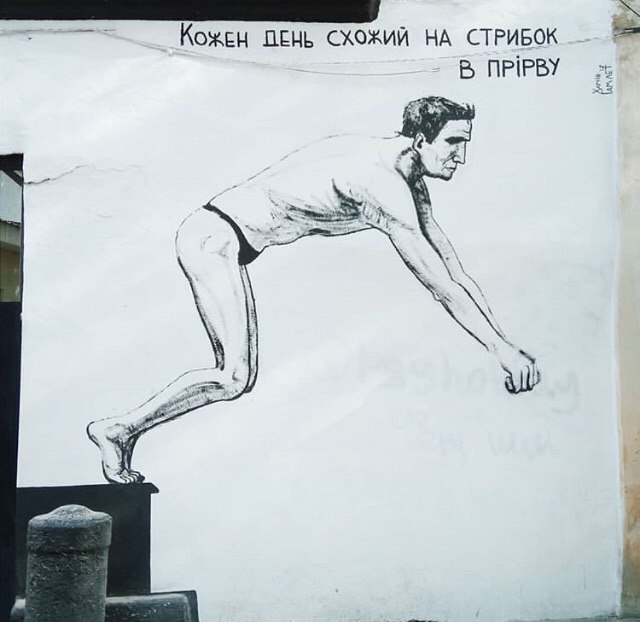 Кожен день схожий на стрибок
в прірву
Гамлет